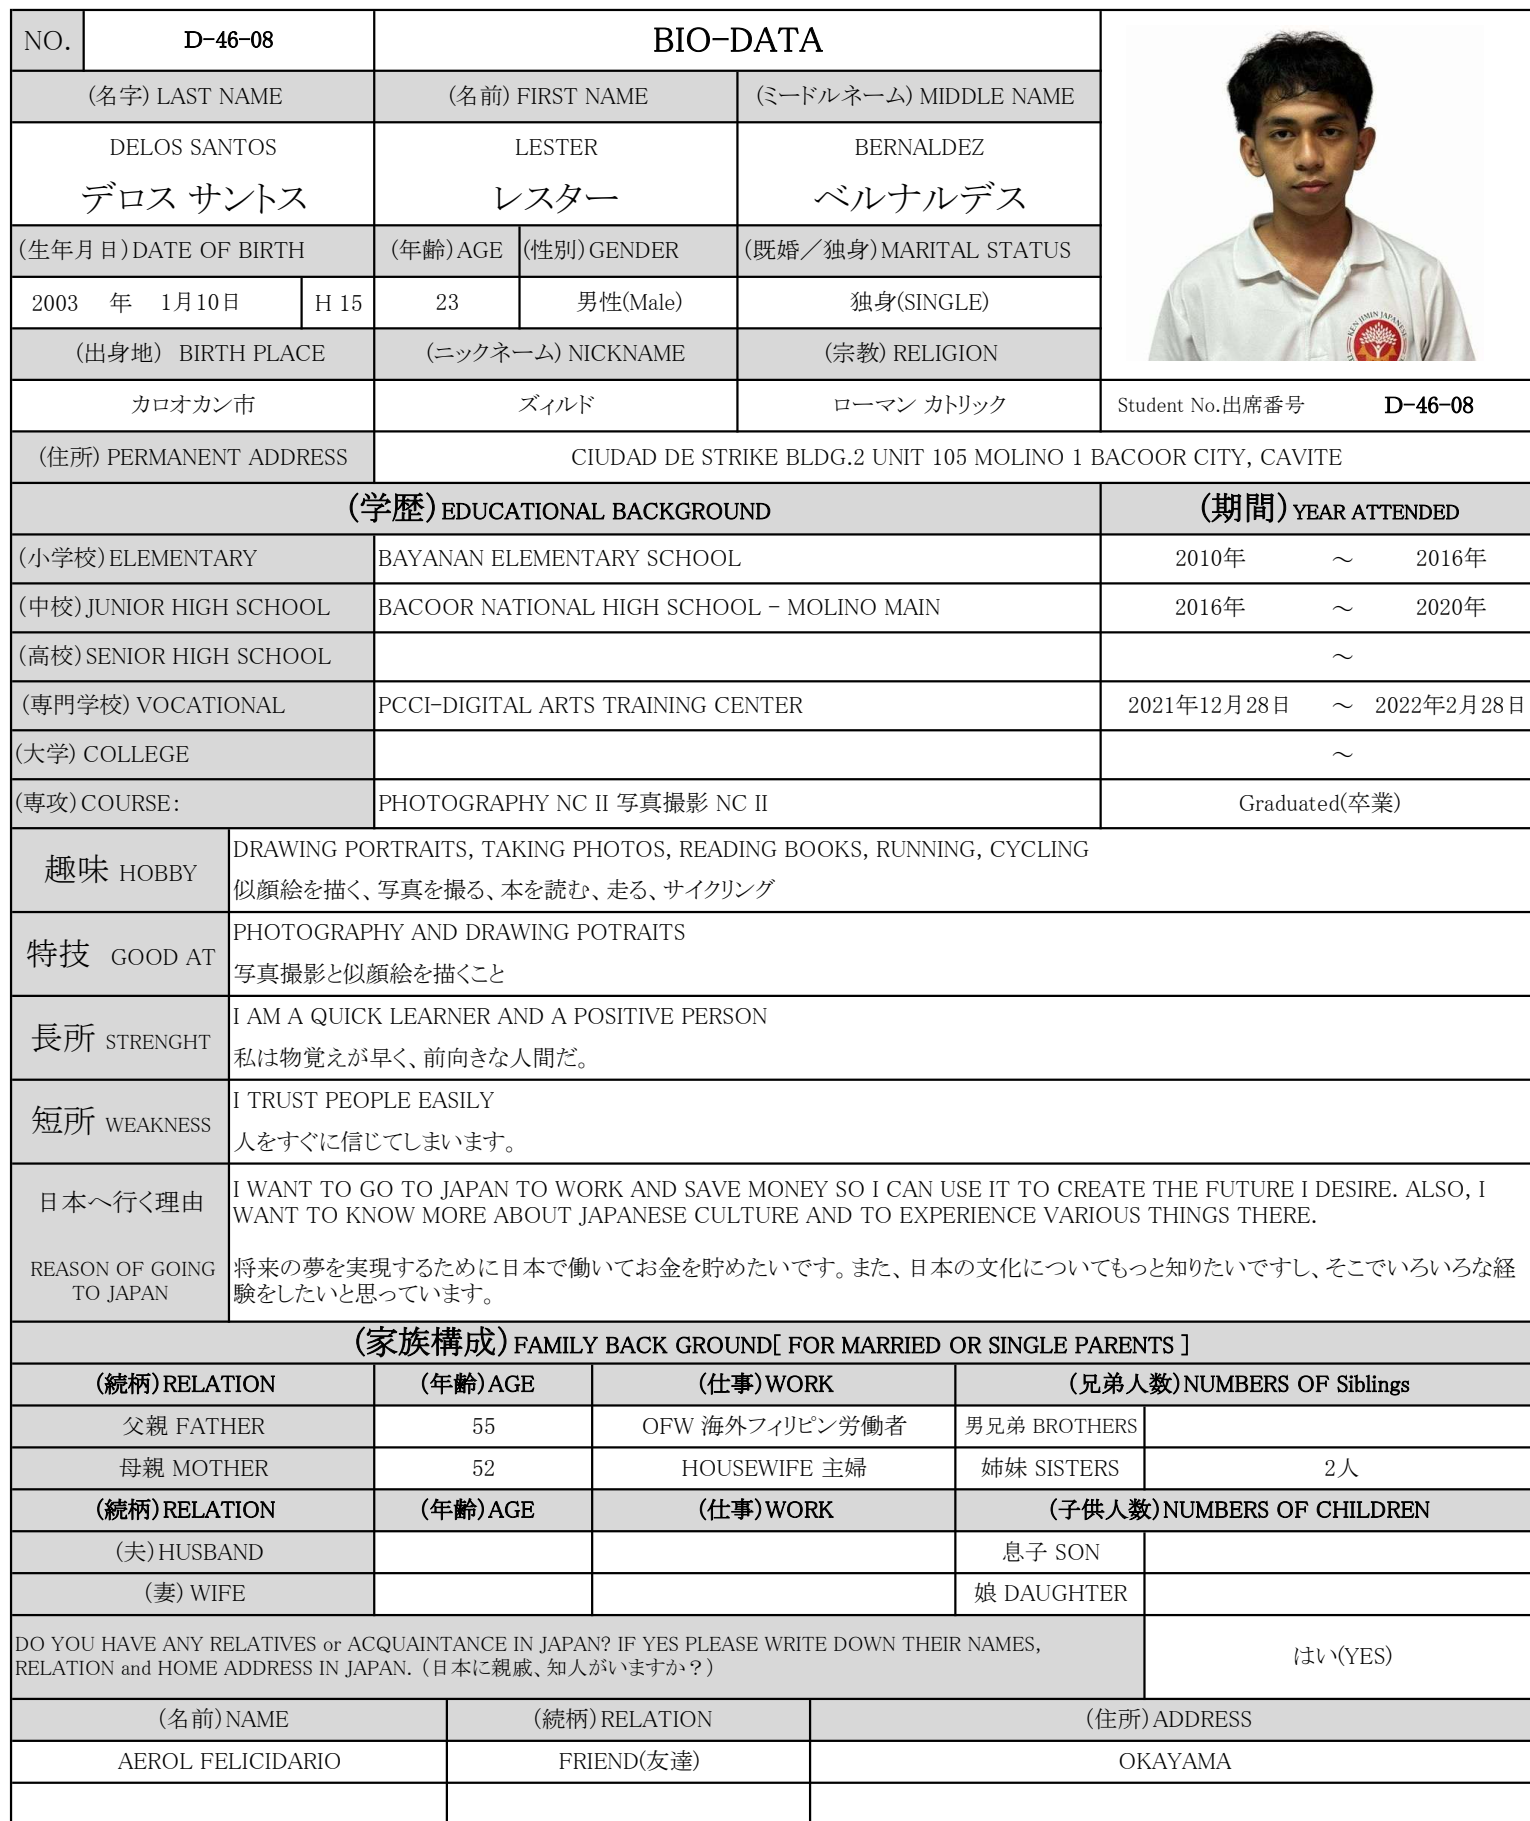 NO. D-46-08 BIO-DATA
(名字) LAST NAME (名前) FIRST NAME (ミードルネーム) MIDDLE NAME
DELOS SANTOS LESTER BERNALDEZ
デロス サントス レスター ベルナルデス
(生年月日) DATE OF BIRTH (年齢) AGE (性別) GENDER (既婚／独身) MARITAL STATUS
2003 年 1月10日 H 15 23 男性(Male) 独身(SINGLE)
KEN JIMIN JAPANESE
(出身地) BIRTH PLACE (ニックネーム) NICKNAME (宗教) RELIGION
カロオカン市 ズィルド ローマン カトリック Student No.出席番号 D-46-08
(住所) PERMANENT ADDRESS CIUDAD DE STRIKE BLDG.2 UNIT 105 MOLINO 1 BACOOR CITY, CAVITE
(学歴) EDUCATIONAL BACKGROUND (期間) YEAR ATTENDED
(小学校) ELEMENTARY BAYANAN ELEMENTARY SCHOOL 2010年 ～ 2016年
(中校) JUNIOR HIGH SCHOOL BACOOR NATIONAL HIGH SCHOOL - MOLINO MAIN 2016年 ～ 2020年
(高校) SENIOR HIGH SCHOOL ～
(専門学校) VOCATIONAL PCCI-DIGITAL ARTS TRAINING CENTER 2021年12月28日 ～ 2022年2月28日
(大学) COLLEGE ～
(専攻) COURSE: PHOTOGRAPHY NC II 写真撮影 NC II Graduated(卒業)
趣味 HOBBY
DRAWING PORTRAITS, TAKING PHOTOS, READING BOOKS, RUNNING, CYCLING
似顔絵を描く、写真を撮る、本を読む、走る、サイクリング
特技 GOOD AT
PHOTOGRAPHY AND DRAWING POTRAITS
写真撮影と似顔絵を描くこと
長所 STRENGHT
I AM A QUICK LEARNER AND A POSITIVE PERSON
私は物覚えが早く、前向きな人間だ。
短所 WEAKNESS
I TRUST PEOPLE EASILY
人をすぐに信じてしまいます。
日本へ行く理由
REASON OF GOING
TO JAPAN
I WANT TO GO TO JAPAN TO WORK AND SAVE MONEY SO I CAN USE IT TO CREATE THE FUTURE I DESIRE. ALSO, I
WANT TO KNOW MORE ABOUT JAPANESE CULTURE AND TO EXPERIENCE VARIOUS THINGS THERE.
将来の夢を実現するために日本で働いてお金を貯めたいです。また、日本の文化についてもっと知りたいですし、そこでいろいろな経
験をしたいと思っています。
(家族構成) FAMILY BACK GROUND[ FOR MARRIED OR SINGLE PARENTS ]
(続柄) RELATION (年齢) AGE (仕事) WORK (兄弟人数) NUMBERS OF Siblings
父親 FATHER 55 OFW 海外フィリピン労働者 男兄弟 BROTHERS
母親 MOTHER 52 HOUSEWIFE 主婦 姉妹 SISTERS 2人
(続柄) RELATION (年齢) AGE (仕事) WORK (子供人数) NUMBERS OF CHILDREN
(夫) HUSBAND 息子 SON
(妻) WIFE 娘 DAUGHTER
DO YOU HAVE ANY RELATIVES or ACQUAINTANCE IN JAPAN? IF YES PLEASE WRITE DOWN THEIR NAMES,
RELATION and HOME ADDRESS IN JAPAN. (日本に親戚、知人がいますか？)
はい(YES)
(名前) NAME (続柄) RELATION (住所) ADDRESS
AEROL FELICIDARIO FRIEND(友達) OKAYAMA